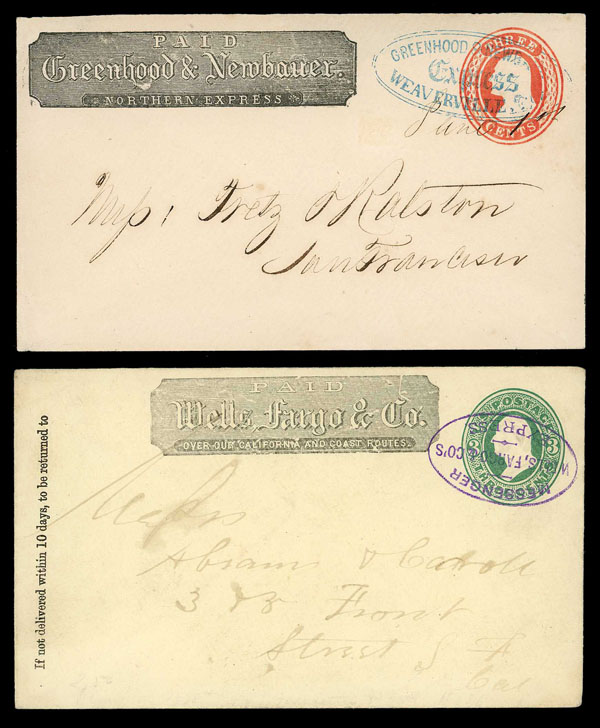 PAID
Greenhood & Newbauer.
NORTHERN EXPRESS
GREENHOOD & NEWB
EXPRESS
WEAVERVILLE
THREE
CENTS
June 1st
Mess: Fretz & Ralston
San Francisco
PAID
Wells, Fargo & Co.
OVER OUR CALIFORNIA AND COAST ROUTES.
POSTAGE
3
MESSENGER
WELLS, FARGO & CO'S
EXPRESS
If not delivered within 10 days, to be returned to
Messrs
Abrams & Carroll
3 & 5 Front
Street S F
Cal